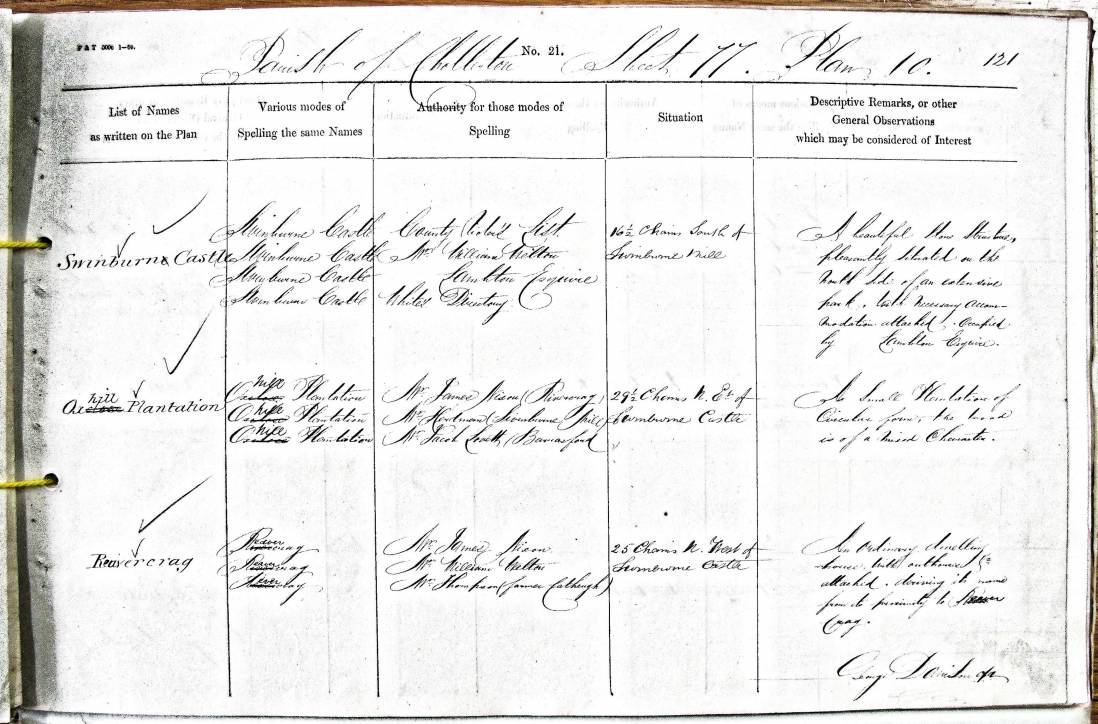 No. 21.
Parish of Chollerton Sheet 77. Plan 10. 121
List of Names
as written on the Plan
Various modes of
Spelling the same Names
Authority for those modes of
Spelling
Situation
Descriptive Remarks, or other
General Observations
which may be considered of Interest
Swinburne Castle
Swinburne Castle
Swinburne Castle
Swinburne Castle
Swinburne Castle
County List
Mr. William Welton
Lambton Esquire
White's Directory.
16½ Chains South of
Swinburne Mill
A beautiful Stone Structure,
pleasantly Situated on the
North Side of an extensive
park, with necessary accom-
modation attached. Occupied
by Lambton Esquire.
Oxhill Plantation
Oxhill Plantation
Oxhill Plantation
Oxhill Plantation
Mr. James Nixon
Mr. Swinburne Mill
Mr. Jacob
29½ Chains N. Et. of
Swinburne Castle
A Small Plantation of
Circular form, the wood
is of a mixed Character.
Reavercrag
Reavercrag
crag
crag
Mr. James Nixon
Mr. William Welton
Mr. Thompson (
25 Chains N. West of
Swinburne Castle
An Ordinary dwelling
house with outhouses &c
attached. deriving its name
from its proximity to Reaver
Crag.
George